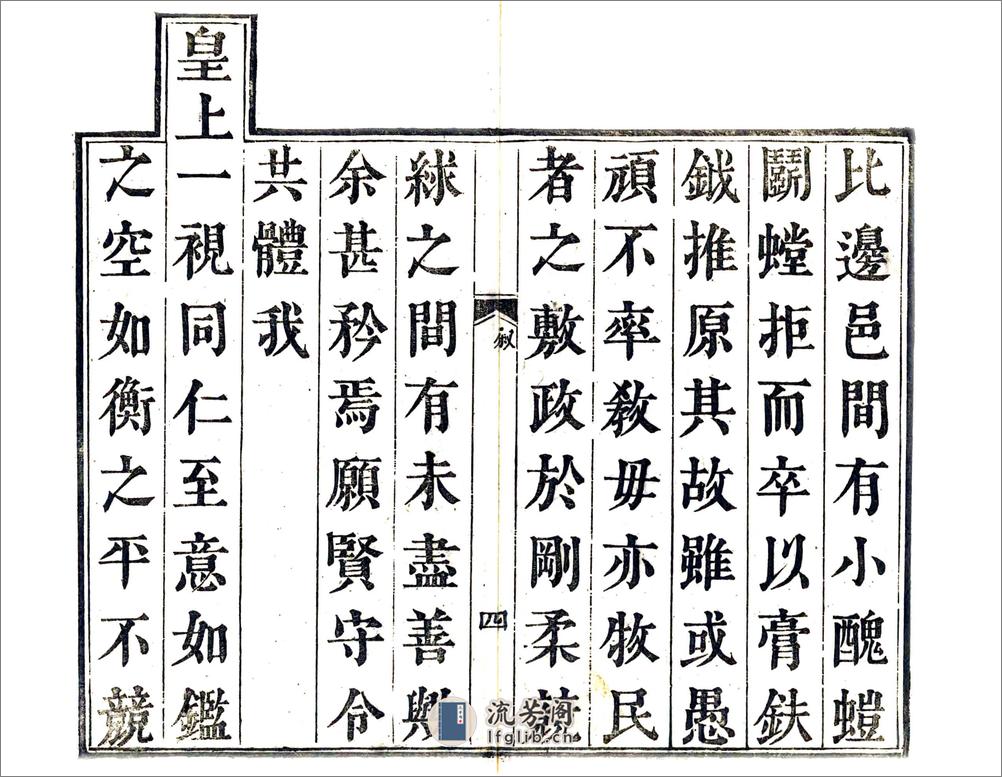 比邊邑間有小醜螘
鬭螳拒而卒以膏鈇
鉞推原其故雖或愚
頑不率敎毋亦牧民
者之敷政於剛柔競
叙
四
絿之間有未盡善與
余甚矜焉願賢守令
共體我
皇上一視同仁至意如鑑
之空如衡之平不競
流芳阁
lfglib.cn